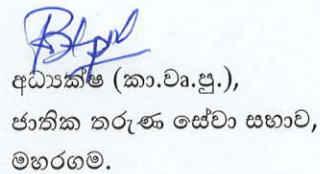 අධ්‍යක්ෂ (කා.වෘ.පු.),
ජාතික තරුණ සේවා සභාව,
මහරගම.